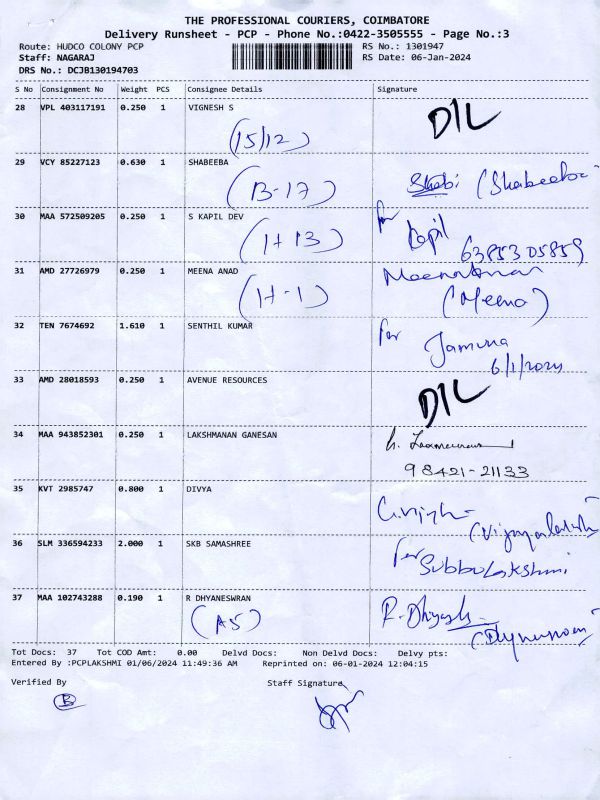 THE PROFESSIONAL COURIERS, COIMBATORE
Delivery Runsheet - PCP - Phone No.:0422-3505555 - Page No.:3
Route: HUDCO COLONY PCP RS No.: 1301947
Staff: NAGARAJ RS Date: 06-Jan-2024
DRS No.: DCJB130194703
S No Consignment No Weight PCS Consignee Details Signature
28 VPL 403117191 0.250 1 VIGNESH S DIL
(15/12)
29 VCY 85227123 0.630 1 SHABEEBA
(B-17) Shabi (Shabeeba)
30 MAA 572509205 0.250 1 S KAPIL DEV for Kapil
(H 13) 63853 05859
31 AMD 27726979 0.250 1 MEENA ANAD
(H-1) (Meena)
32 TEN 7674692 1.610 1 SENTHIL KUMAR for Jamuna
6/1/2024
33 AMD 28018593 0.250 1 AVENUE RESOURCES DIL
34 MAA 943852301 0.250 1 LAKSHMANAN GANESAN
98421-21133
35 KVT 2985747 0.800 1 DIVYA
(Vijayalakshmi)
36 SLM 336594233 2.000 1 SKB SAMASHREE for Subbulakshmi
37 MAA 102743288 0.190 1 R DHYANESWRAN
(A5)
Tot Docs: 37 Tot COD Amt: 0.00 Delvd Docs: Non Delvd Docs: Delvy pts:
Entered By :PCPLAKSHMI 01/06/2024 11:49:36 AM Reprinted on: 06-01-2024 12:04:15
Verified By Staff Signature
B